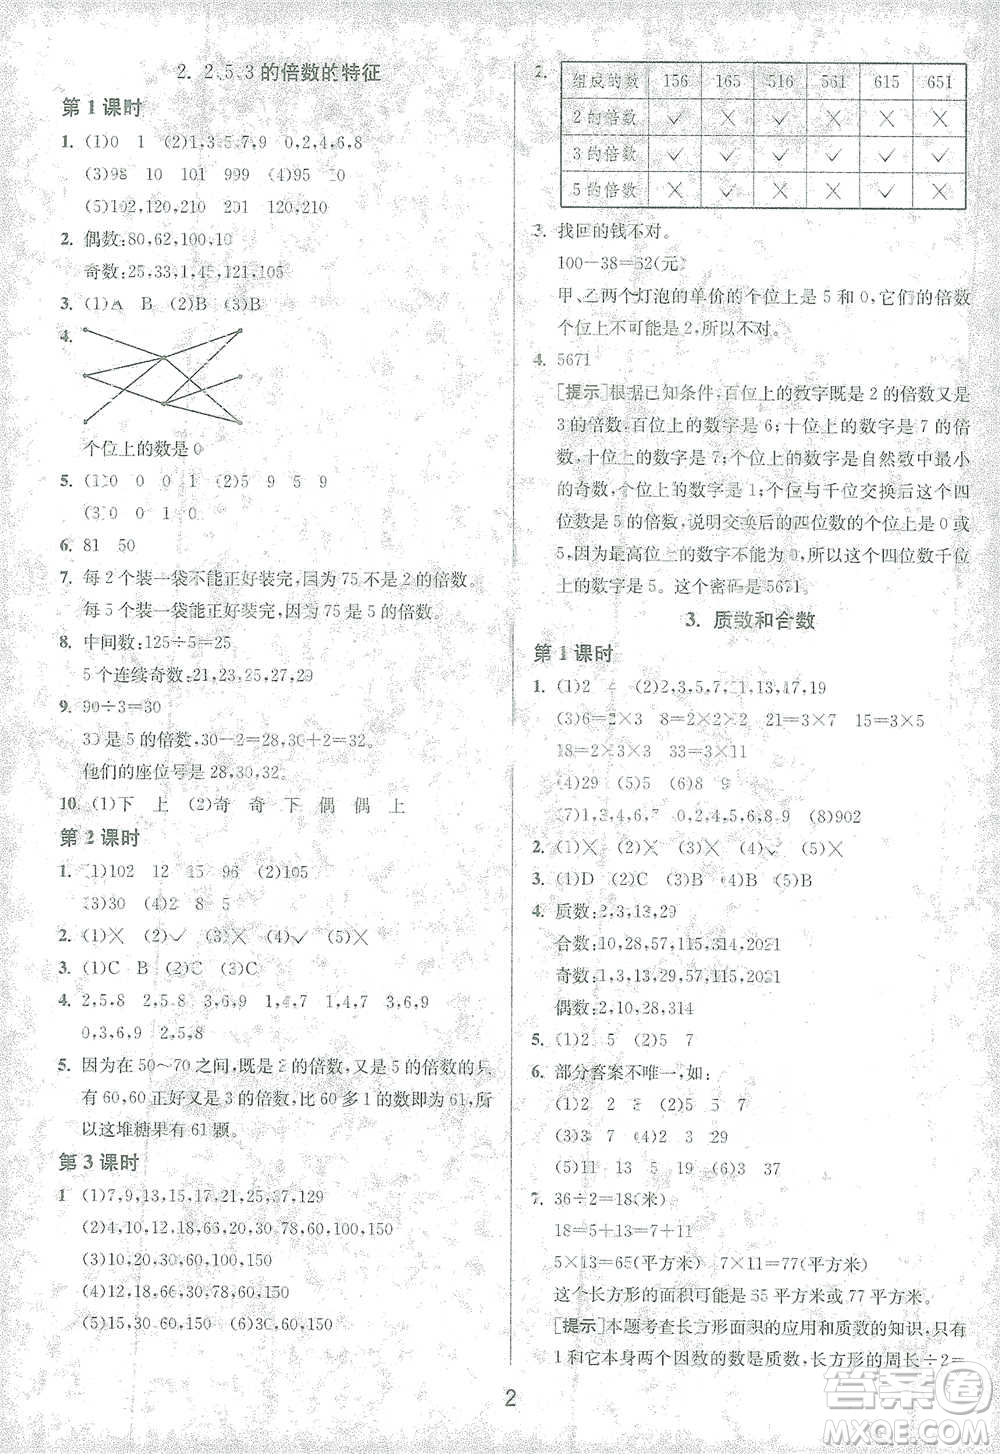 2. 2、5、3的倍数的特征
第1课时
1. (1)0 1 (2)1,3,5,7,9 0,2,4,6,8
(3)98 10 101 999 (4)95
(5)102,120,210 201 120,210
2. 偶数:80,62,100,10
奇数:25,33,1,45,121,105
3. (1)A B (2)B (3)B
4.
个位上的数是0
5. (1)0 0 0 1 (2)5 9 5 9
(3)0 0 1 0
6. 81 50
7. 每2个装一袋不能正好装完,因为75不是2的倍数。
每5个装一袋能正好装完,因为75是5的倍数。
8. 中间数:125÷5=25
5个连续奇数:21,23,25,27,29
9. 90÷3=30
30是5的倍数,30-2=28,30+2=32。
他们的座位号是28,30,32。
10. (1)下 上 (2)奇 奇 下 偶 偶 上
第2课时
1. (1)102 12 15 96 (2)105
(3)30 (4)2 8 5
2. (1)× (2)✓ (3)× (4)✓ (5)×
3. (1)C B (2)A (3)C
4. 2,5,8 2,5,8 3,6,9 1,4,7 1,4,7 3,6,9
0,3,6,9 2,5,8
5. 因为在50~70之间,既是2的倍数,又是5的倍数的只
有60,60正好又是3的倍数,比60多1的数即为61,所
以这堆糖果有61颗。
第3课时
1 (1)7,9,13,15,17,21,25,37,129
(2)4,10,12,18,66,30,78,60,100,150
(3)10,15,25,30,60,100,150
(4)12,18,66,30,78,60,150
(5)15,30,60,150 (6)30,60,150
2.
组成的数 156 165 516 561 615 651
2的倍数 ✓ × ✓ × × ×
3的倍数 ✓ ✓ ✓ ✓ ✓ ✓
5的倍数 × ✓ × × ✓ ×
3. 找回的钱不对。
100-38=62(元)
甲、乙两个灯泡的单价的个位上是5和0,它们的倍数
个位上不可能是2,所以不对。
4. 5671
[提示]根据已知条件,百位上的数字既是2的倍数又是
3的倍数,百位上的数字是6;十位上的数字是7的倍
数,十位上的数字是7;个位上的数字是自然数中最小
的奇数,个位上的数字是1;个位与千位交换后这个四
位数是5的倍数,说明交换后的四位数的个位是0或
5,因为最高位上的数字不能为0,所以这个四位数千位
上的数字是5。这个密码是5671。
3. 质数和合数
第1课时
1. (1)2 4 (2)2,3,5,7,11,13,17,19
(3)6=2×3 9=3×3 21=3×7 15=3×5
18=2×3×3 33=3×11
(4)29 (5)51 (6)8 9
(8)902
2. (1)×
3. (1)D
4. 质数:2,3,13,29
合数:10,28,57,115,314,2021
奇数:1,3,13,29,57,115,2021
偶数:2,10,28,314
5. (1)2 (2)5 7
6. 部分答案不唯一,如:
(1)2 2 3 (2)5 7 5
(5)11 13 (6)3 37
7. 36÷2=18(米)
18=5+13=7+11
5×13=65(平方米) 7×11=77(平方米)
这个长方形的面积可能是65平方米或77平方米。
[提示]本题考查长方形面积的应用和质数的知识,只有
1和它本身两个因数的数是质数,长方形的周长÷2=
2
答案圈
MXQE.COM